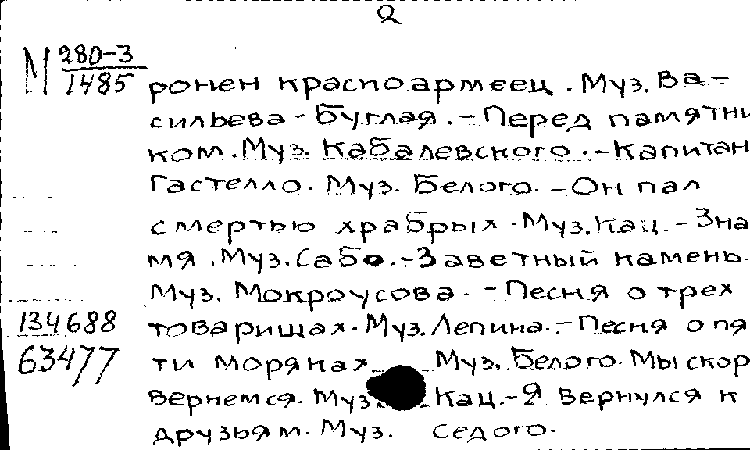 2
М 280-3
1485
ронен красноармеец. Муз. Ва-
сильева-Буглая. - Перед памятни
ком. Муз. Кабалевского. - Капитан
Гастелло. Муз. Белого. - Он пал
смертью храбрых. Муз. Кац. - Зна
мя. Муз. Сабо. - Заветный камень.
Муз. Мокроусова. - Песня о трех
134688 товарищах. Муз. Лепина. - Песня о пя
63477 ти моряках Муз. Белого. Мы скор
вернемся. Муз. Кац. - Я вернулся к
друзьям. Муз. Седого.